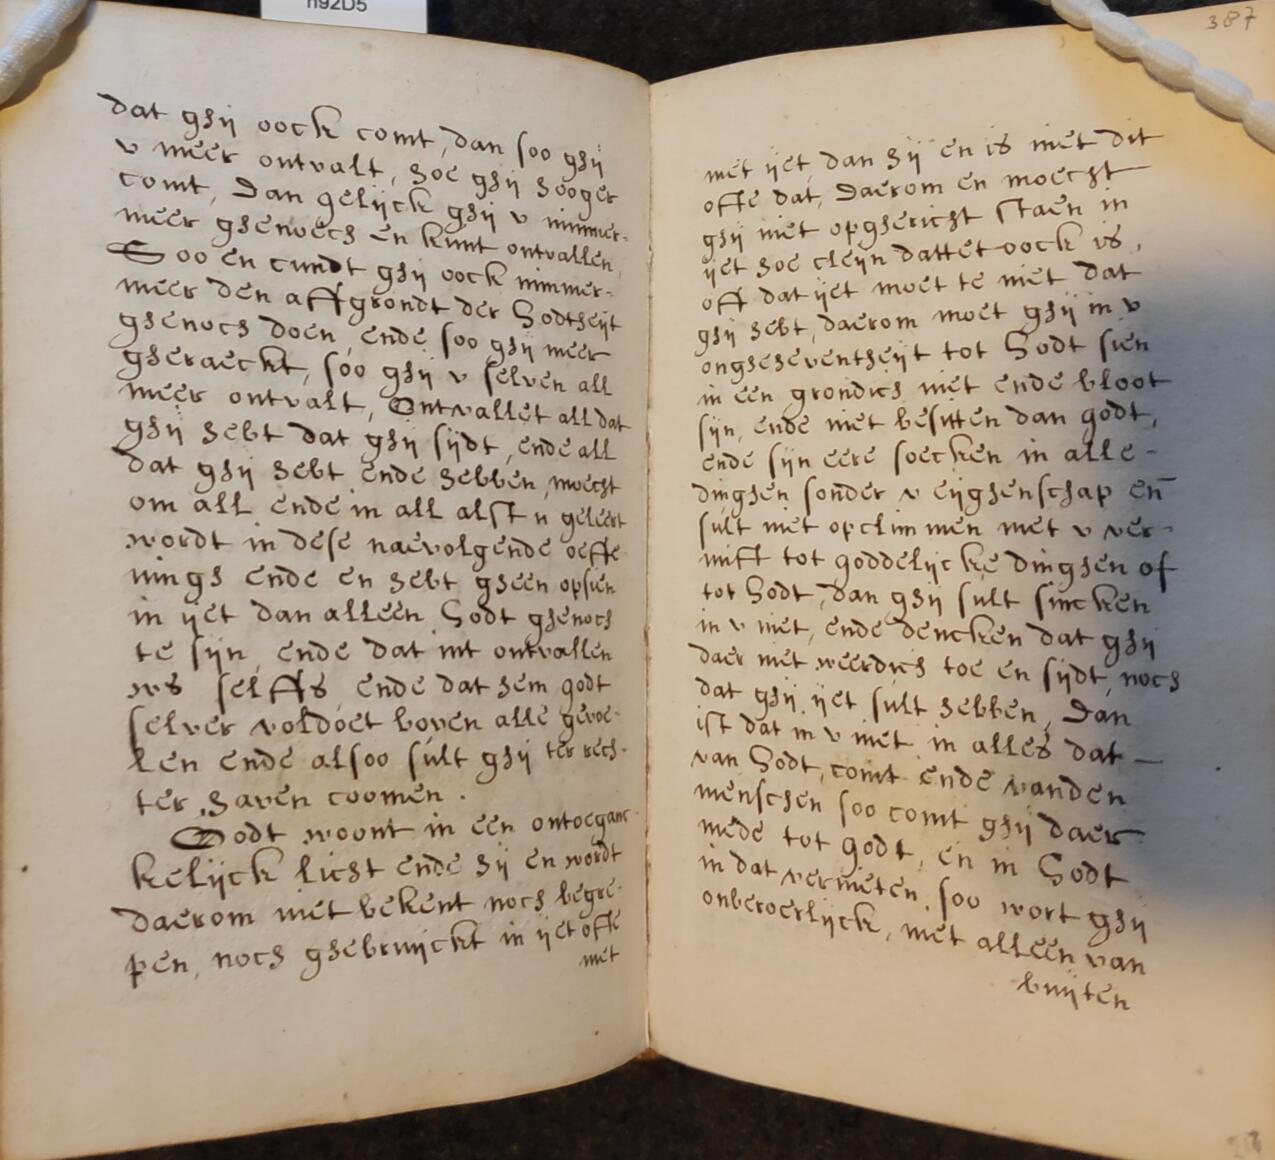 h92D5
dat ghij oock comt, dan soo ghij
v meer ontvalt, hoe ghij hooger
comt, Dan gelijck ghij v nimmer-
meer ghenoech en kunt ontvallen,
Soo en cundt ghij oock nimmer-
meer den affgrondt der Godtheijt
ghenoch doen, ende soo ghij meer
gheraeckt, soo ghij v selven all
meer ontvalt, Ontvallet all dat
ghij hebt dat ghij sijdt, ende all
dat ghij hebt ende hebben moecht
om all ende in all alst u geleert
wordt in dese naevolgende oeffe
nings ende en hebt gheen opsien
in ijet dan alleen Godt ghenoch
te sijn, ende dat int ontvallen
ws selffs, ende dat hem godt
selver voldoet boven alle gevoe-
len ende alsoo sult ghij ter rech-
ter haven coomen.
Godt woont in een ontoeganc-
kelijck licht ende hij en wordt
daerom niet bekent noch begre-
pen, noch ghebruijckt in ijet offe
met
387
met ijet, dan hij en is niet dit
offe dat, Daerom en moecht
ghij niet opghericht staen in
ijet hoe cleijn dattet oock is,
off dat ijet moet te niet dat
ghij hebt, daerom moet ghij in v
ongheheventheijt tot Godt sien
in een grondich niet ende bloot
sijn, ende niet besitten dan godt,
ende sijn eere soecken in alle-
dinghen sonder v eijghenschap en̄
sult niet opclimmen met v ver-
nifft tot goddelijcke dinghen of
tot Godt, dan ghij sult sincken
in v niet, ende dencken dat ghij
daer niet weerdich toe en sijdt, noch
dat ghij ijet sult hebben, Dan
ist dat in v niet in alles dat
van Godt, comt ende vanden
menschen soo comt ghij daer
mede tot godt, en in Godt
in dat vernieten, soo wort ghij
onberoerlijck, niet alleen van
buijten